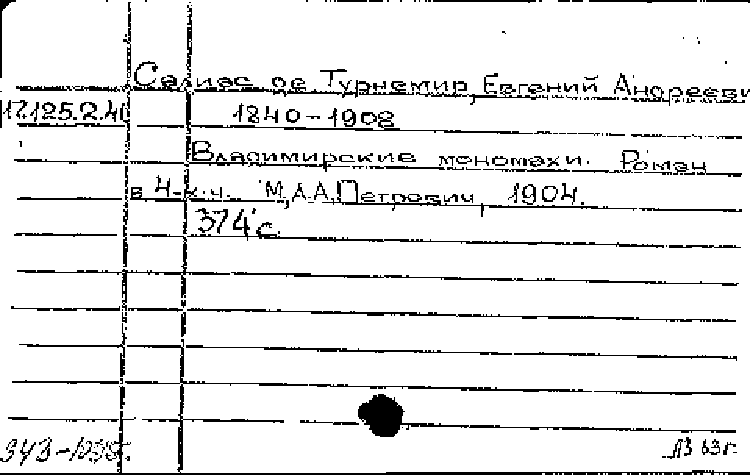 Салиас де Турнемир, Евгений Андреевич
17.125.2.41
1840-1908
Владимирские мономахи. Роман
в 4-х ч. М., А.А. Петрович, 1904.
374 с.